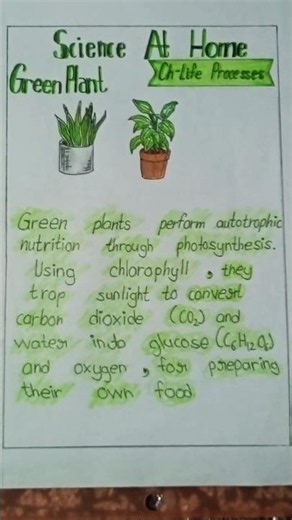 Science At Home
Green Plant
Ch-Life Processes
Green plants perform autotrophic
nutrition through photosynthesis.
Using chlorophyll, they
trap sunlight to convert
carbon dioxide (CO₂) and
water into glucose (C₆H₁₂O₆)
and oxygen, for preparing
their own food